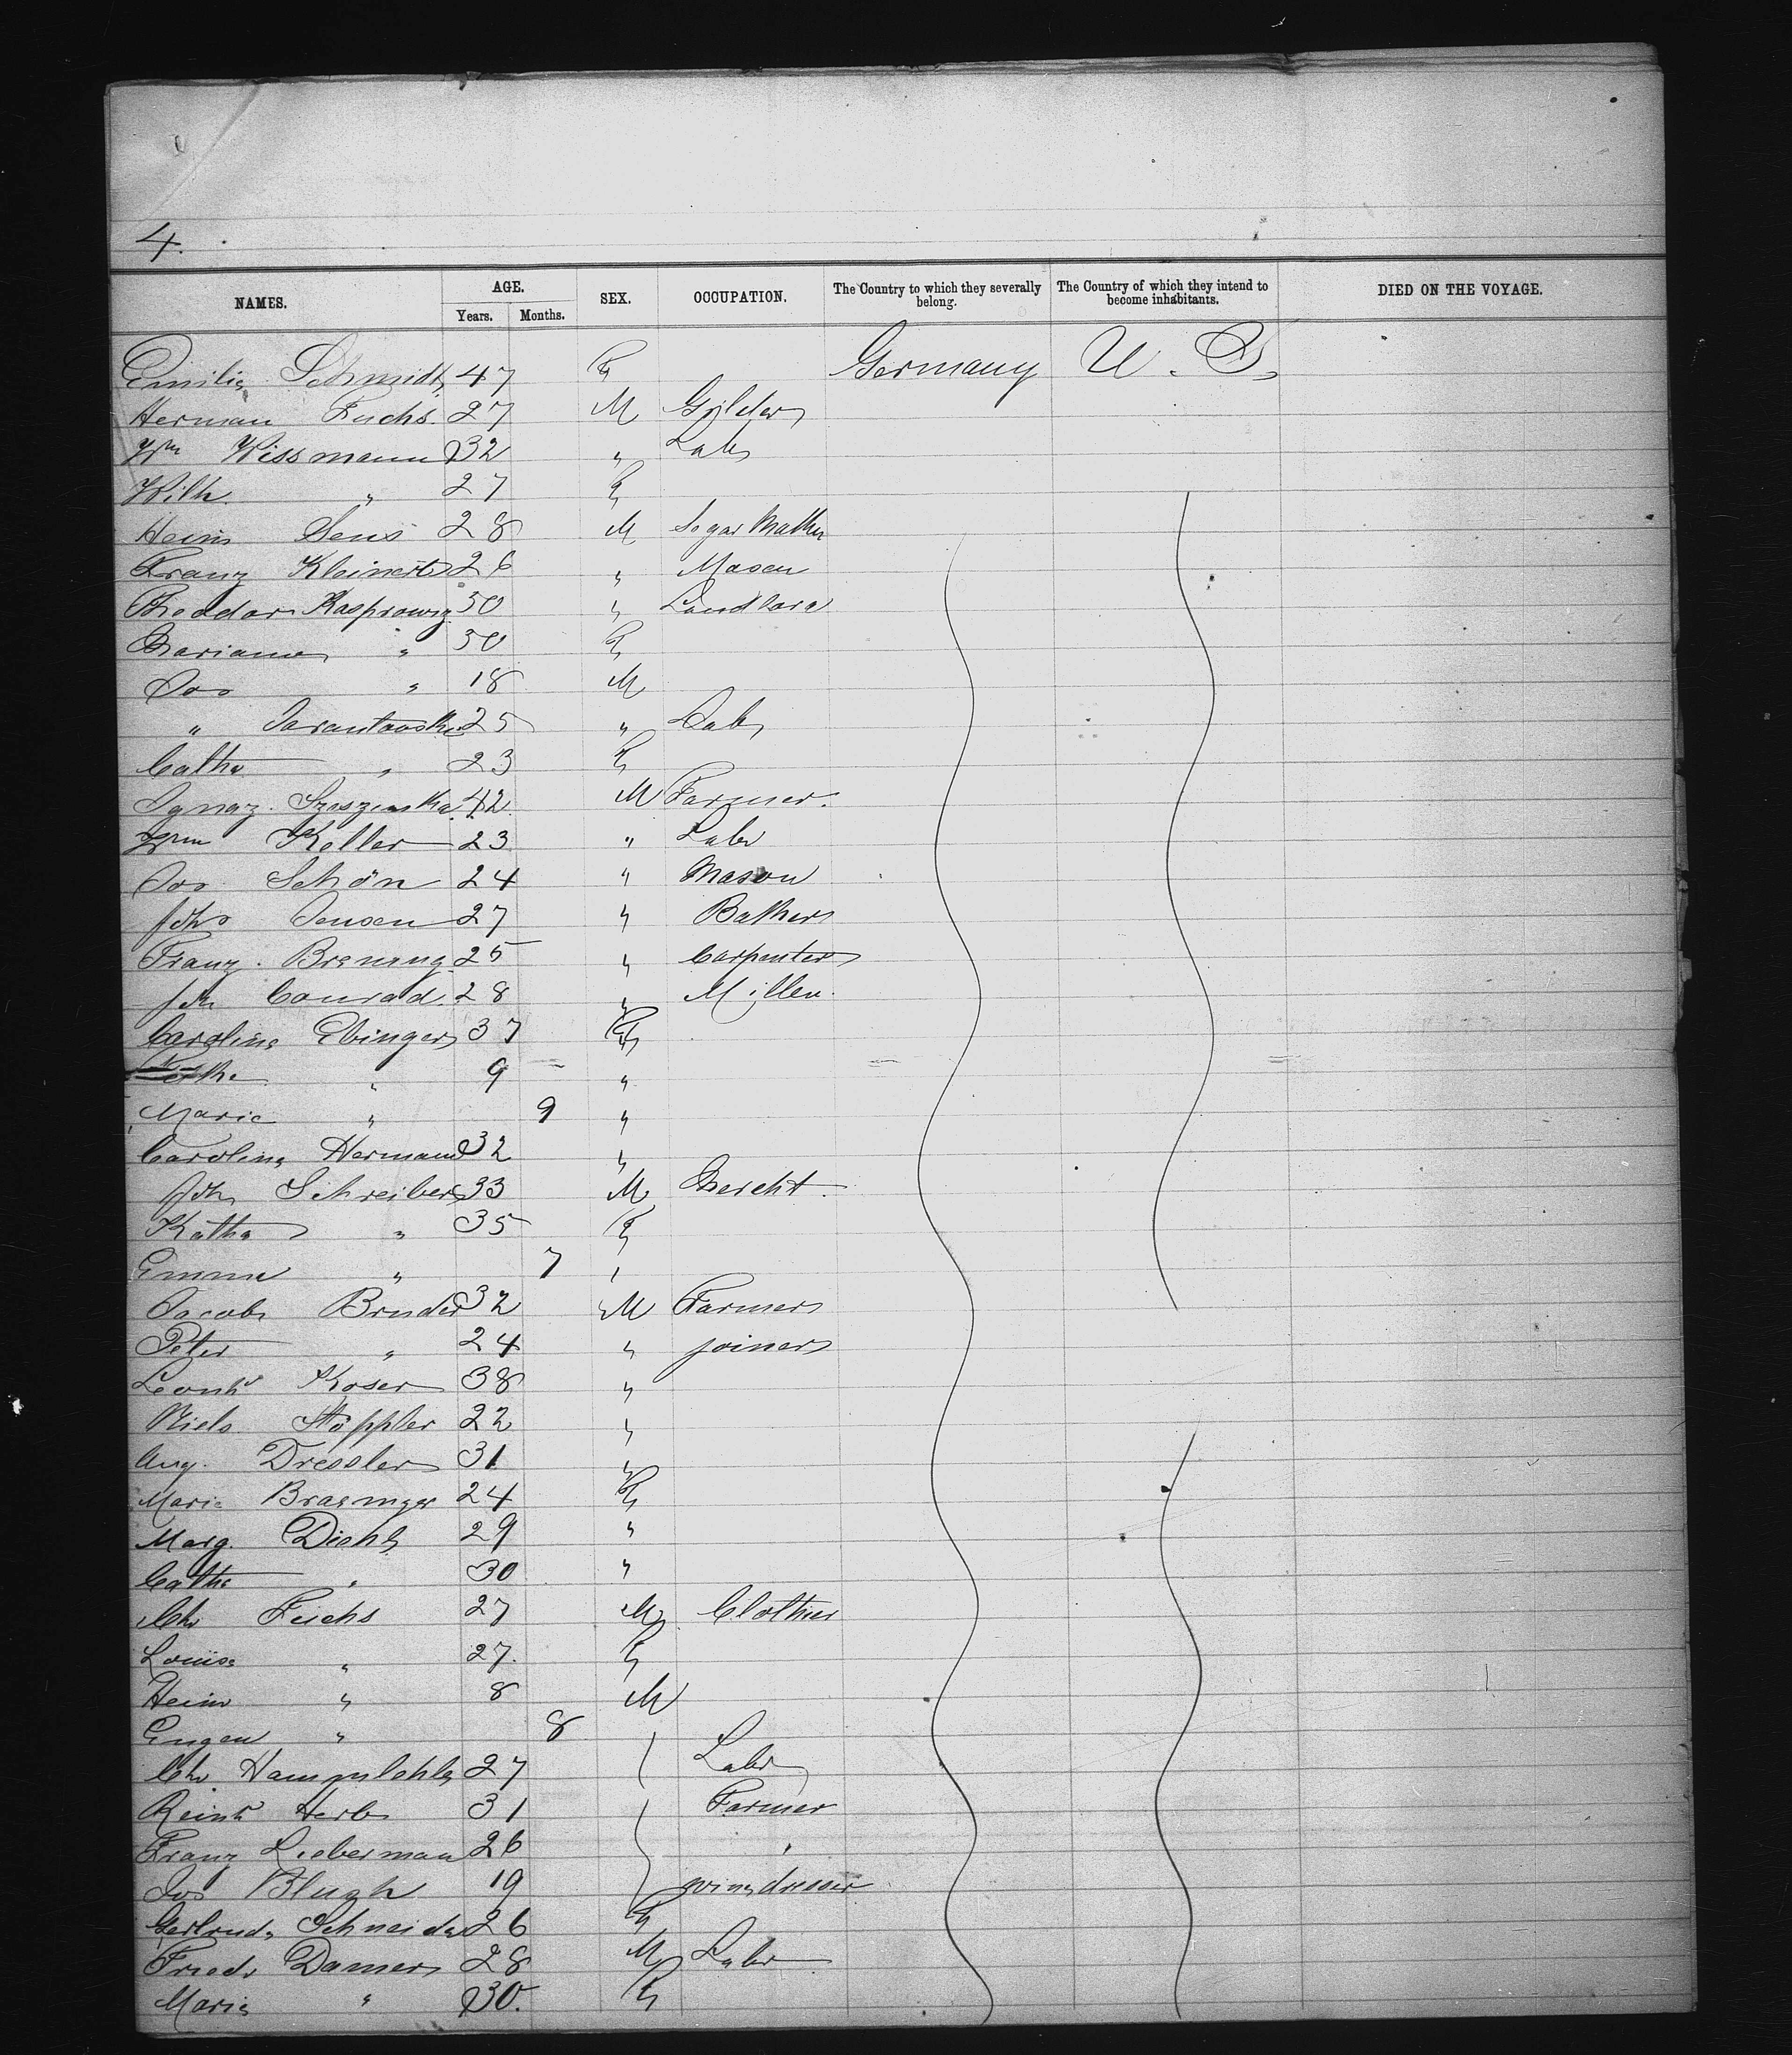 4.
NAMES. AGE. Years. Months. SEX. OCCUPATION. The Country to which they severally belong. The Country of which they intend to become inhabitants. DIED ON THE VOYAGE.
Emilie Schmidt 47 F Germany U. S.
Herman Fuchs. 27 M Gilder
Wm Wissmann 32 " Labr
Wilh. " 27 F
Heinr Sens 28 M Segar Maker
Franz Kleinert 26 " Mason
Theodor Kasprowiz 50 " Landlord
Mariane " 50 F
Jos " 18 M
" 25 " Labr
Cathe " 23 F
Ignaz. 42. M Farmer.
Keller 23 " Labr
Jos Schön 24 " Mason
Johs Jensen 27 " Baker
Franz. 25 " Carpenter
Joh Conrad. 28 " Miller.
Caroline Ebinger 37 F
" 9 "
Marie " 9 "
Caroline Hermann 32 "
Joh Schreiber 33 M Mercht.
Kathe " 35 F
Emma " 7 "
Jacob Bruder 32 M Farmer
Peter " 24 " joiner
Leonhd Koser 38 "
Niels Stöppler 22 "
Aug. Dressler 31 "
Marie 24 F
Marg. Diehl 29 "
Cathe " 30 "
Chr Fuchs 27 M Clothier
Louise " 27. F
Heinr " 8 M
Eugen " 8
Chr 27 Labr
Reinh Herb 31 Farmer
Franz Lieberman 26 "
Jos 19 vine dresser
Gertrude Schneider 26 F
Friedr Damer 28 M Labr
Marie " 30. F